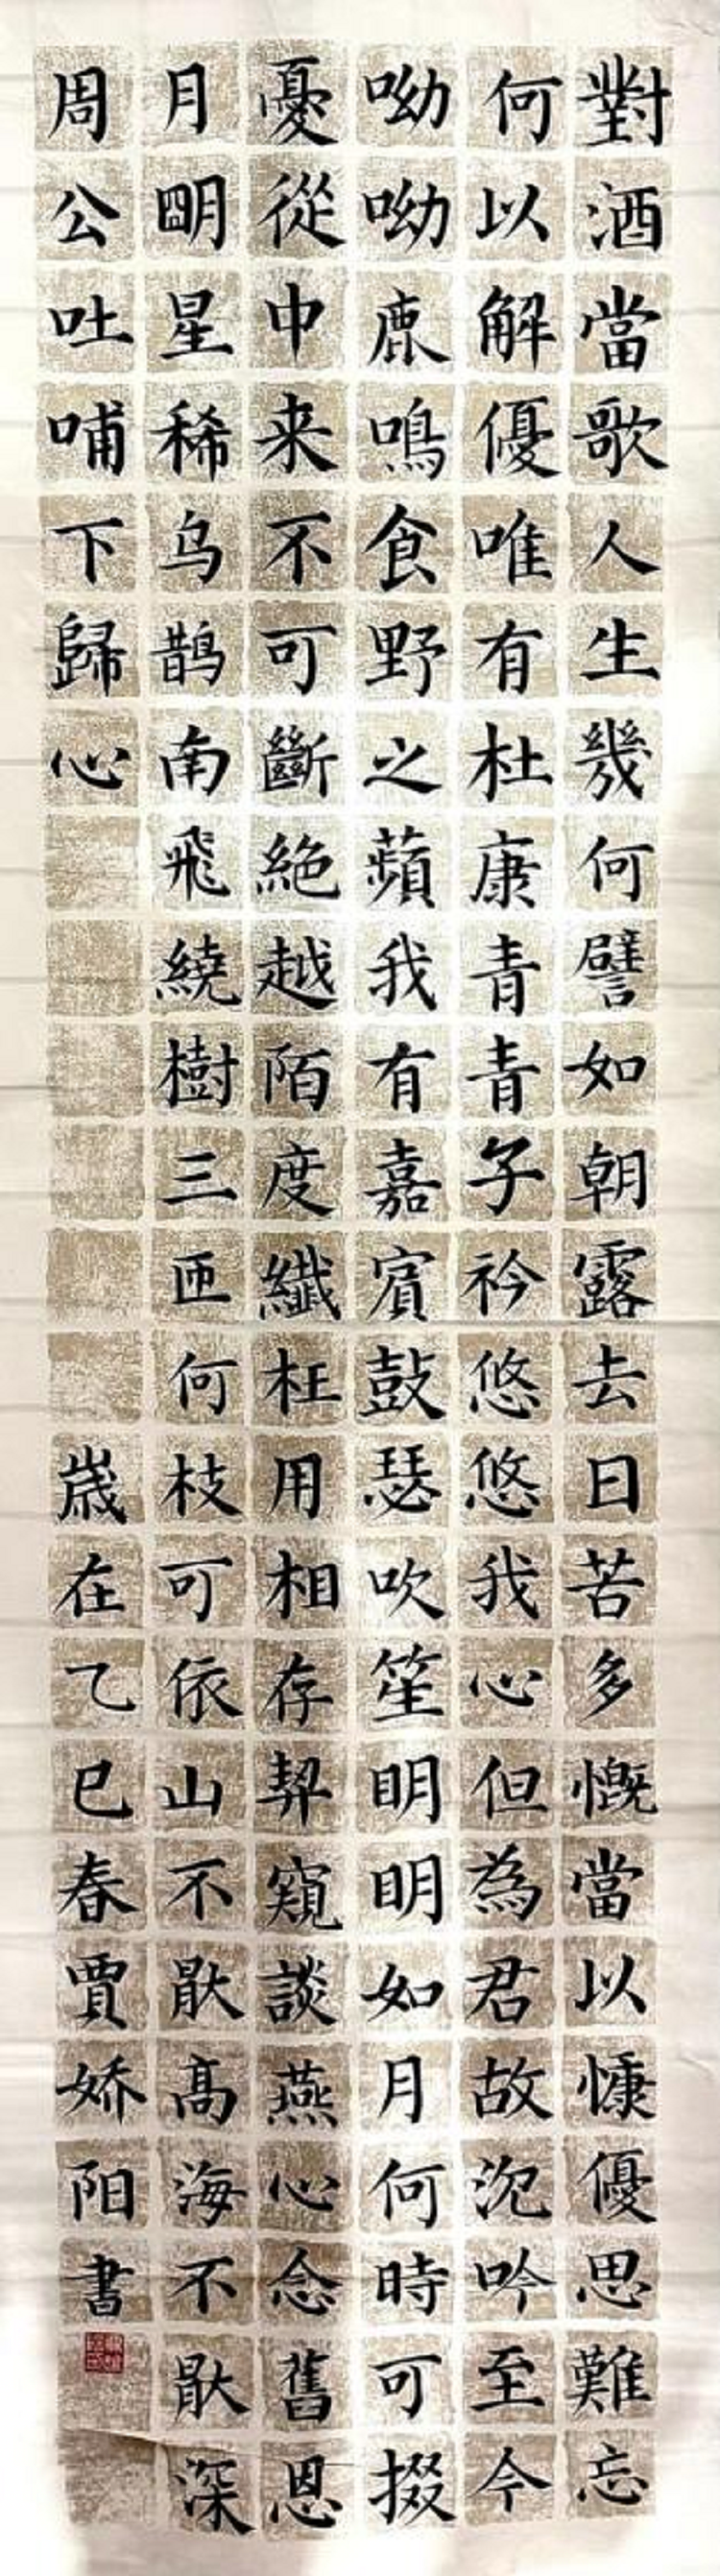 對酒當歌人生幾何譬如朝露去日苦多慨當以慷優思難忘
何以解優唯有杜康青青子衿悠悠我心但為君故沉吟至今
呦呦鹿鳴食野之蘋我有嘉賓鼓瑟吹笙明明如月何時可掇
憂從中来不可斷絕越陌度纖枉用相存契窺談燕心念舊恩
月明星稀乌鹊南飛繞樹三匝何枝可依山不猒高海不猒深
周公吐哺下歸心
歲在乙巳春賈娇阳書